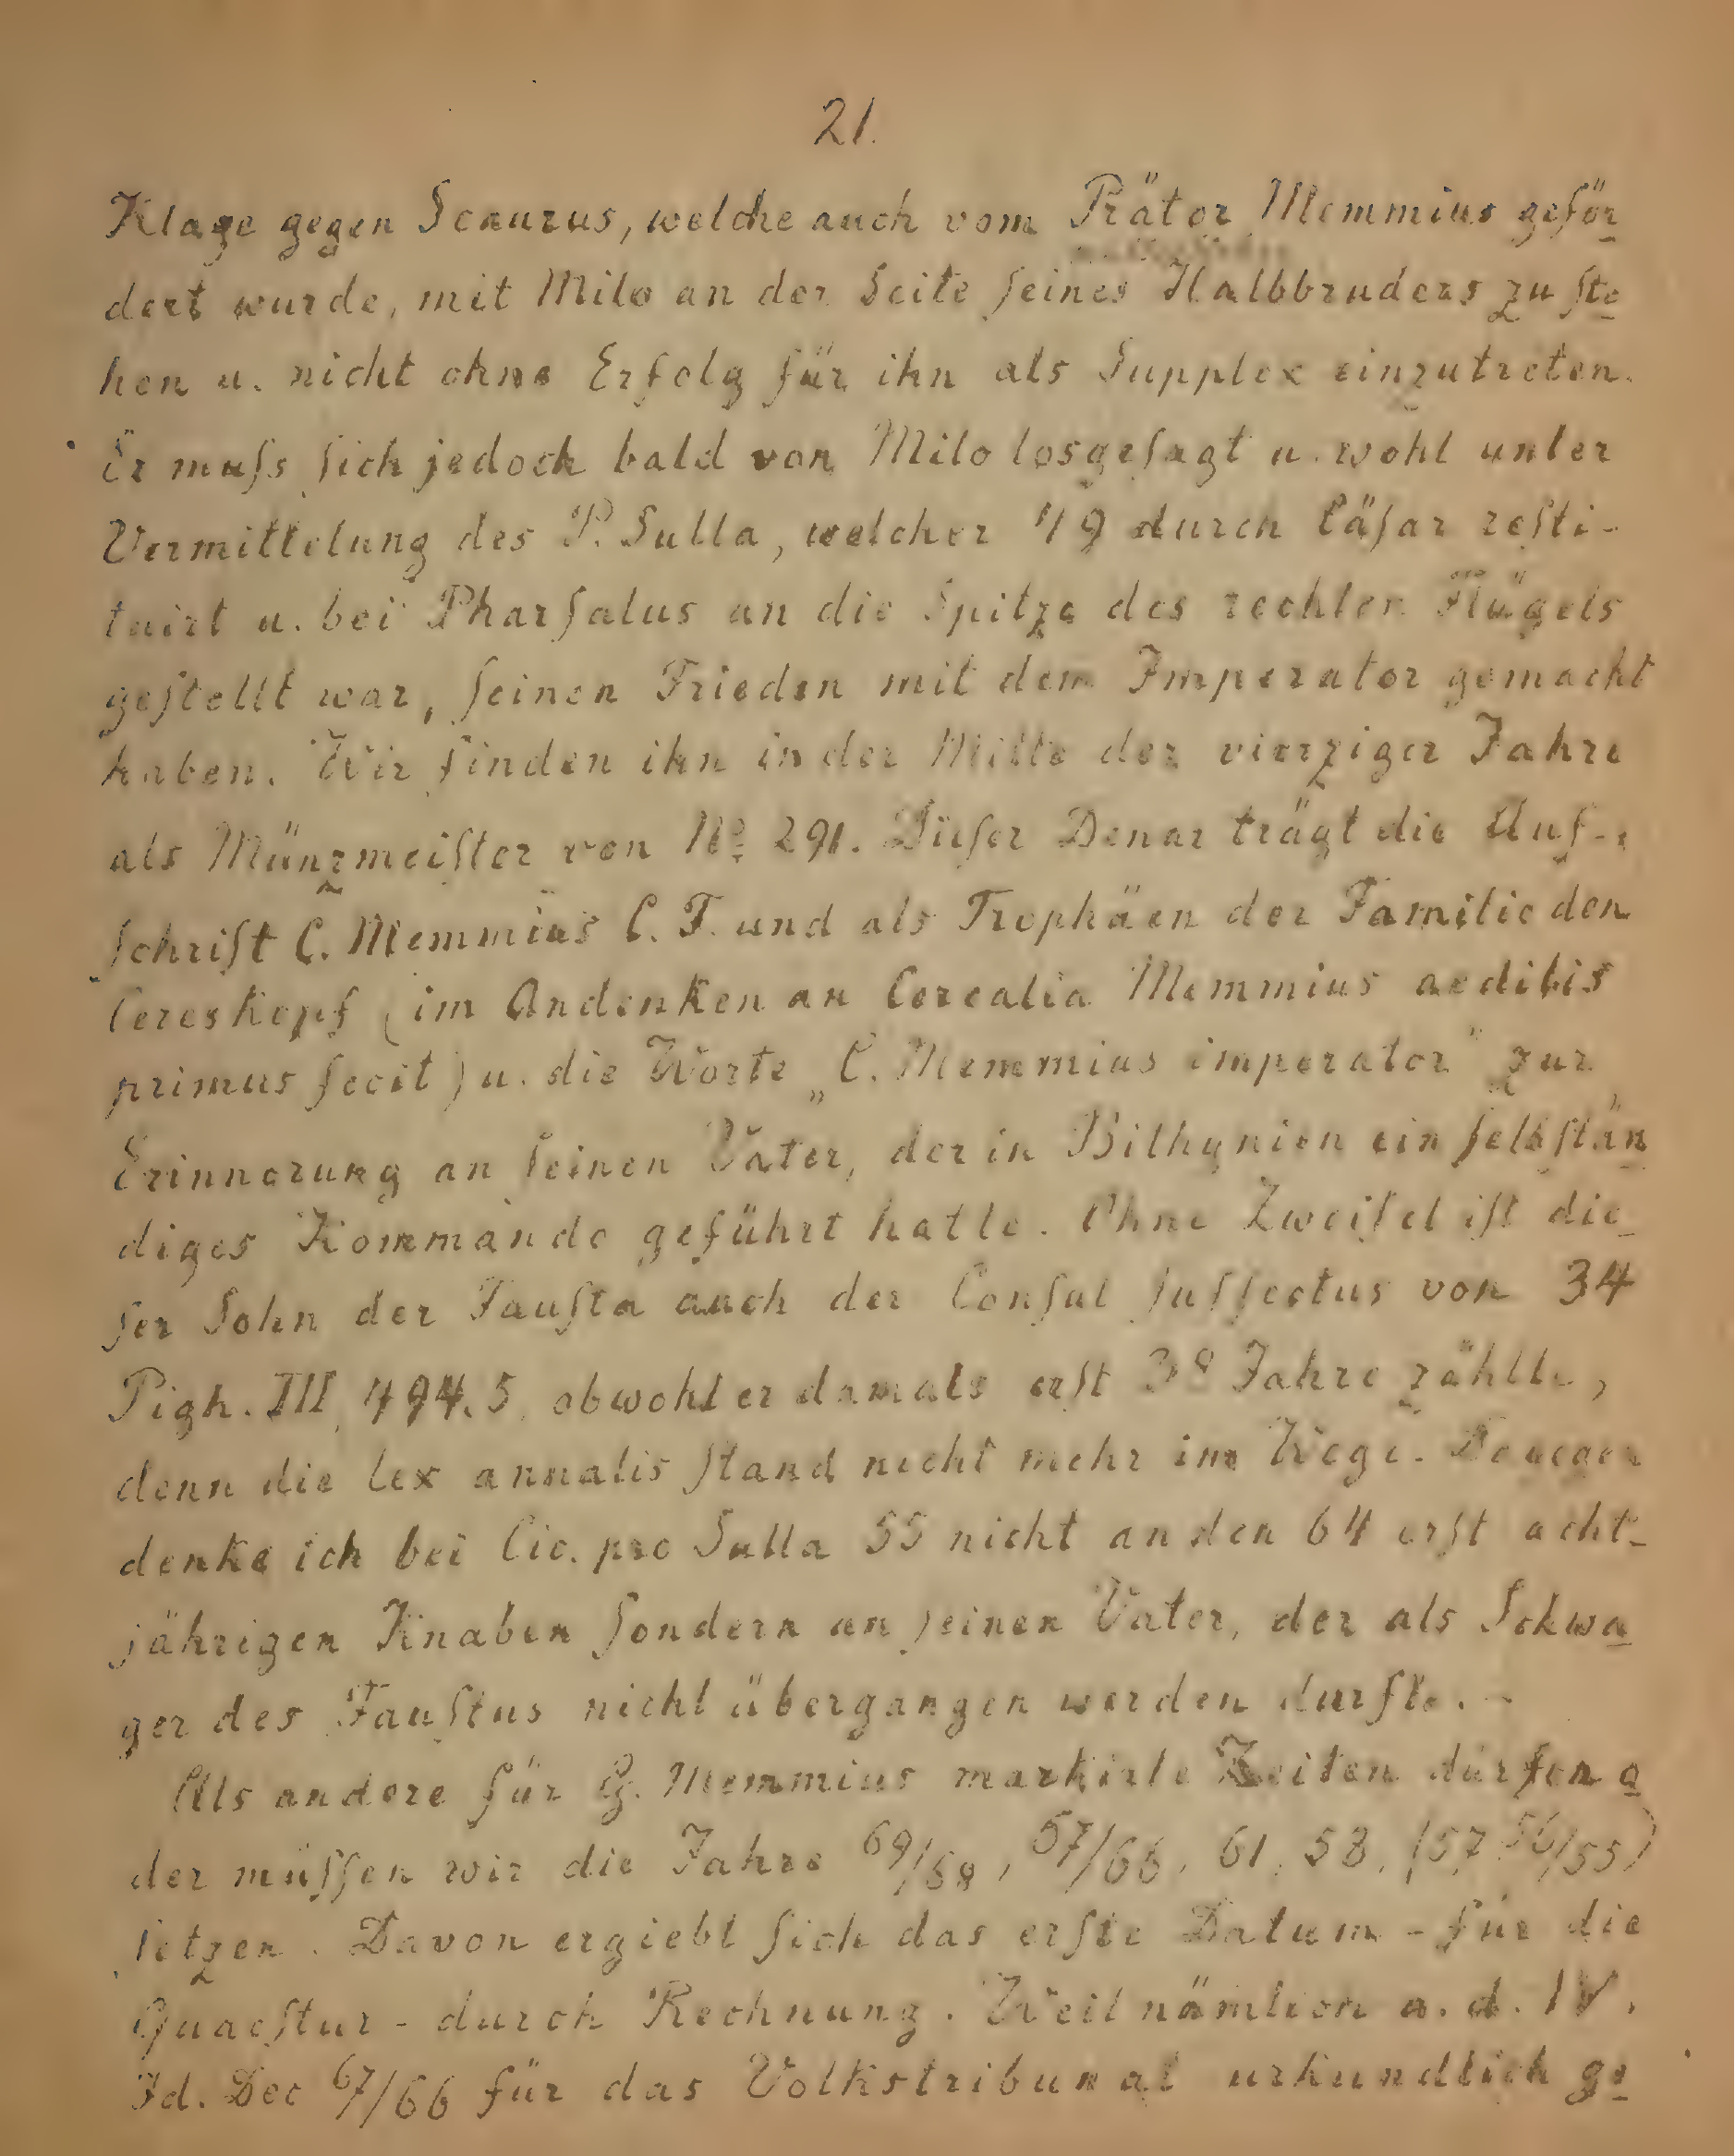 21.
Klage gegen Scaurus, welche auch vom Prätor Memmius geför
dert wurde, mit Milo an der Seite ſeines Halbbruders zu ſte
hen u. nicht ohne Erfolg für ihn als Supplex einzutreten.
Er muſs ſich jedoch bald von Milo losgeſagt u. wohl unter
Vermittelung des P. Sulla, welcher 49 durch Cäſar reſti-
tuirt u. bei Pharſalus an die Spitze des rechten Flügels
geſtellt war, ſeinen Frieden mit dem Imperator gemacht
haben. Wir finden ihn in der Mitte der vierziger Jahre
als Münzmeiſter von No 291. Dieſer Denar trägt die Auf-
ſchrift C. Memmius C. F. und als Trophäen der Familie den
Cereskopf (im Andenken an Cerealia Memmius aedilis
primus fecit) u. die Worte „C. Memmius imperator" zur
Erinnerung an ſeinen Vater, der in Bithynien ein ſelbſtän
diges Kommando geführt hatte. Ohne Zweifel iſt die
ſer Sohn der Fauſta auch der Conſul ſuffectus von 34
Pigh. III, 494.5, obwohl er damals erſt 38 Jahre zählte,
denn die lex annalis ſtand nicht mehr im Wege. Deswegen
denke ich bei Cic. pro Sulla 55 nicht an den 64 erſt acht-
jährigen Knaben ſondern an ſeinen Vater, der als Schwa
ger des Fauſtus nicht übergangen werden durfte. -
Als andere für G. Memmius markirte Zeiten dürfen o
der müſſen wir die Jahre 69/68, 67/66, 61, 58, (57 56/55)
ſetzen. Davon ergiebt ſich das erſte Datum - für die
Quaeſtur - durch Rechnung. Weil nämlich a. d. IV.
Id. Dec 67/66 für das Volkstribunat urkundlich ge